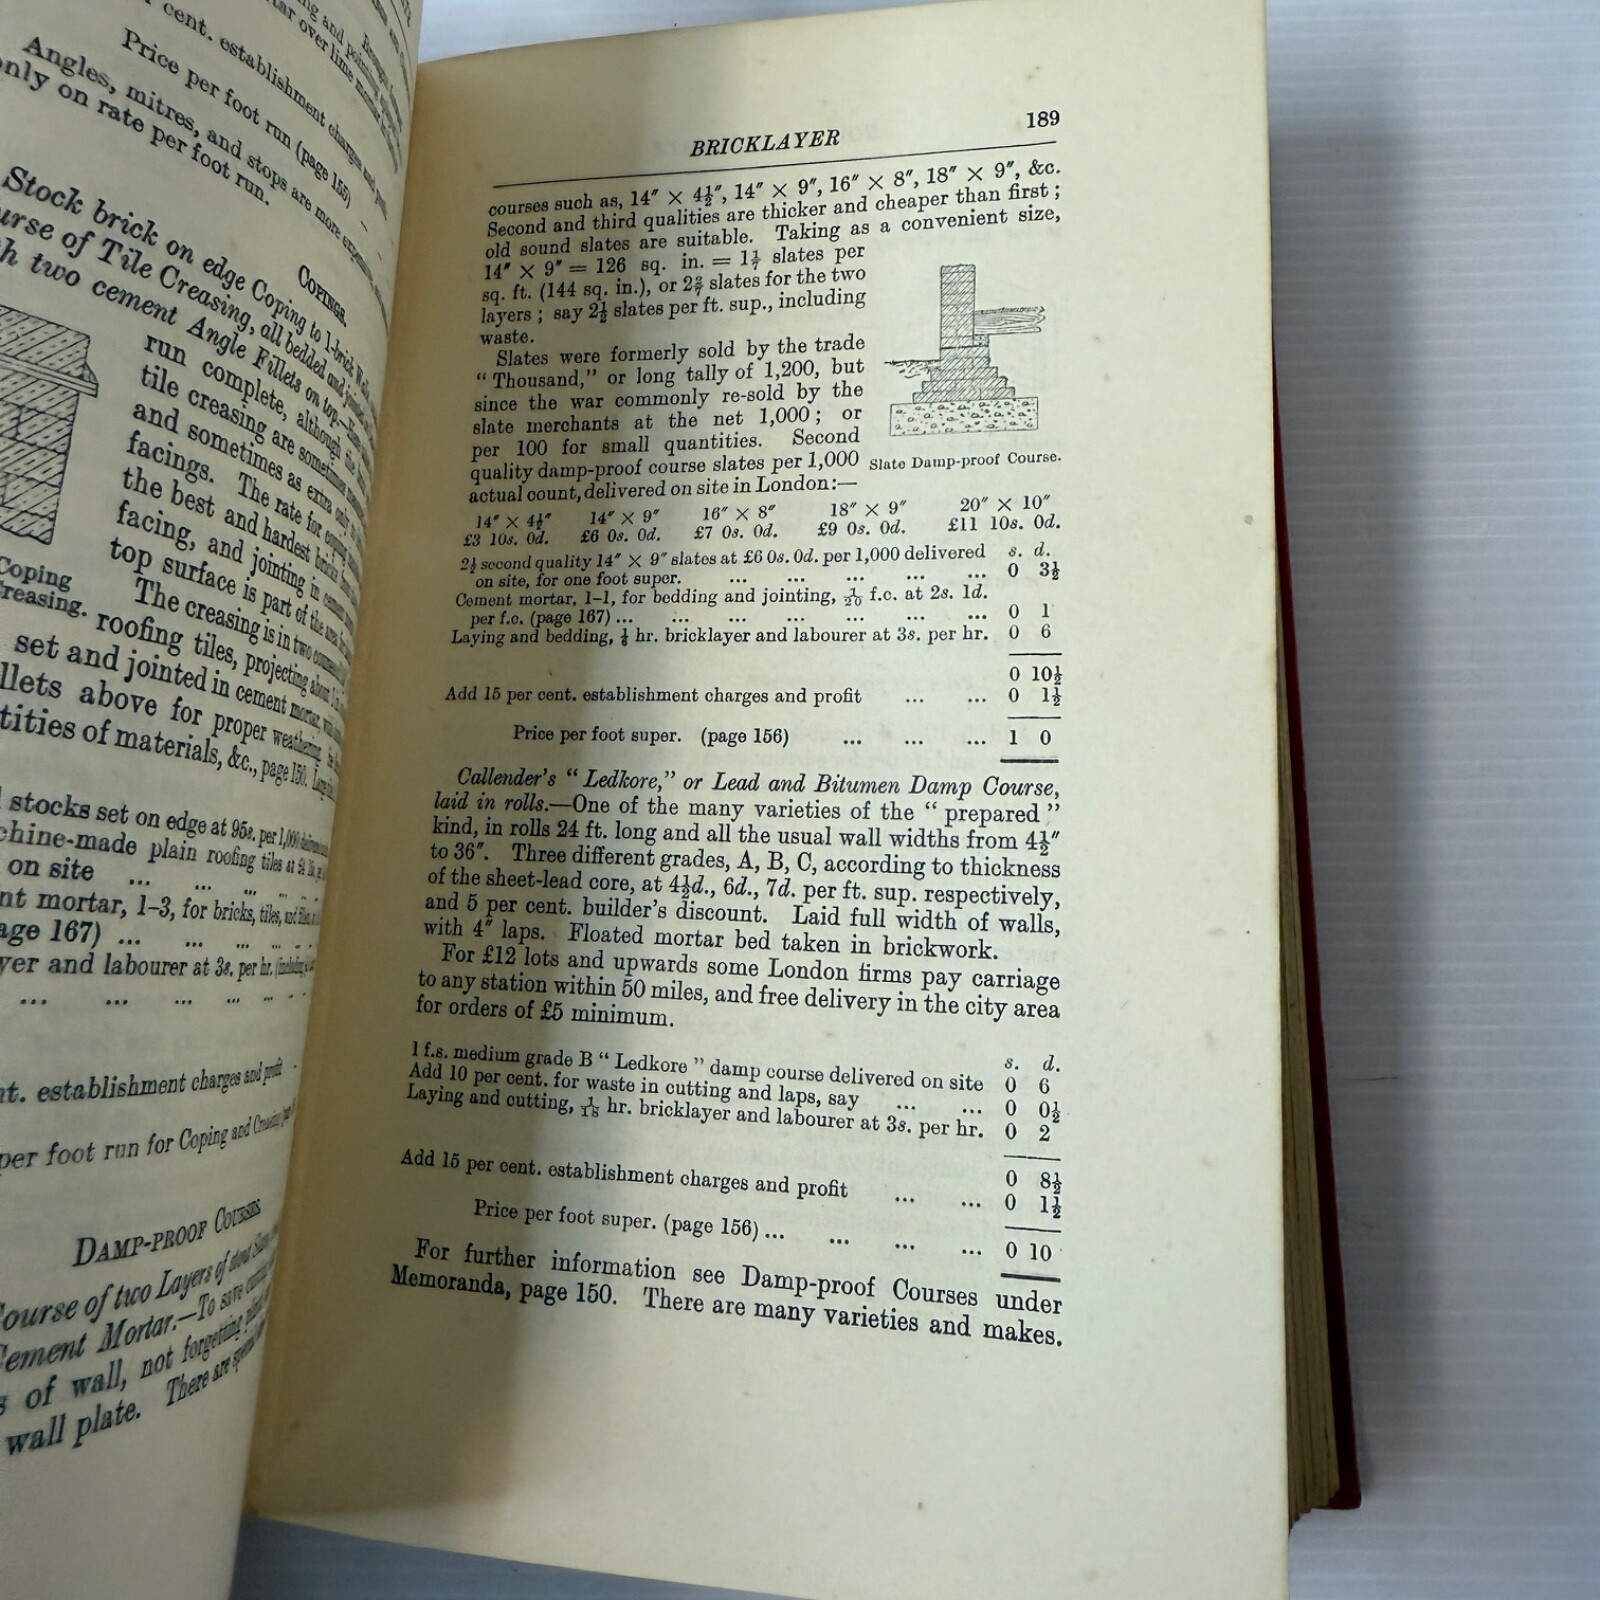 cent. establishment charges and profit
Price per foot run (page 155)
Angles, mitres, and stops are more expensive,
only on rate per foot run.
COPINGS.
Stock brick on edge Coping to 1-brick Wall,
course of Tile Creasing, all bedded and jointed
two cement Angle Fillets on top.—
run complete, although the
tile creasing are sometimes
and sometimes as extra only
facings. The rate for coping
the best and hardest bricks
facing, and jointing in cement
top surface is part of the
Coping
Creasing.
The creasing is in two courses
roofing tiles, projecting about
set and jointed in cement mortar, with
fillets above for proper weathering.
quantities of materials, &c., page 150.
stocks set on edge at 95s. per 1,000
machine-made plain roofing tiles at
on site ... ... ... ...
mortar, 1–3, for bricks, tiles, and
page 167) ... ... ... ...
and labourer at 3s. per hr.
... ... ... ... ...
establishment charges and profit
per foot run for Coping and Creasing
DAMP-PROOF COURSES
Course of two Layers of
Cement Mortar.—To save
of wall, not forgetting
wall plate. There are
BRICKLAYER 189
courses such as, 14″ × 4½″, 14″ × 9″, 16″ × 8″, 18″ × 9″, &c.
Second and third qualities are thicker and cheaper than first;
old sound slates are suitable. Taking as a convenient size,
14″ × 9″ = 126 sq. in. = 1⅐ slates per
sq. ft. (144 sq. in.), or 2²⁄₇ slates for the two
layers; say 2½ slates per ft. sup., including
waste.
Slates were formerly sold by the trade
“Thousand,” or long tally of 1,200, but
since the war commonly re-sold by the
slate merchants at the net 1,000; or
per 100 for small quantities. Second
quality damp-proof course slates per 1,000
actual count, delivered on site in London:—
Slate Damp-proof Course.
14″ × 4½″ 14″ × 9″ 16″ × 8″ 18″ × 9″ 20″ × 10″
£3 10s. 0d. £6 0s. 0d. £7 0s. 0d. £9 0s. 0d. £11 10s. 0d.
2½ second quality 14″ × 9″ slates at £6 0s. 0d. per 1,000 delivered s. d.
on site, for one foot super. ... ... ... ... ... 0 3½
Cement mortar, 1–1, for bedding and jointing, 1/20 f.c. at 2s. 1d.
per f.c. (page 167) ... ... ... ... ... ... 0 1
Laying and bedding, ⅙ hr. bricklayer and labourer at 3s. per hr. 0 6
0 10½
Add 15 per cent. establishment charges and profit ... ... 0 1½
Price per foot super. (page 156) ... ... ... 1 0
Callender's “Ledkore,” or Lead and Bitumen Damp Course,
laid in rolls.—One of the many varieties of the “prepared”
kind, in rolls 24 ft. long and all the usual wall widths from 4½″
to 36″. Three different grades, A, B, C, according to thickness
of the sheet-lead core, at 4½d., 6d., 7d. per ft. sup. respectively,
and 5 per cent. builder's discount. Laid full width of walls,
with 4″ laps. Floated mortar bed taken in brickwork.
For £12 lots and upwards some London firms pay carriage
to any station within 50 miles, and free delivery in the city area
for orders of £5 minimum.
s. d.
1 f.s. medium grade B “Ledkore” damp course delivered on site 0 6
Add 10 per cent. for waste in cutting and laps, say ... ... 0 0½
Laying and cutting, 1/18 hr. bricklayer and labourer at 3s. per hr. 0 2
0 8½
Add 15 per cent. establishment charges and profit ... ... 0 1½
Price per foot super. (page 156) ... ... ... ... 0 10
For further information see Damp-proof Courses under
Memoranda, page 150. There are many varieties and makes.